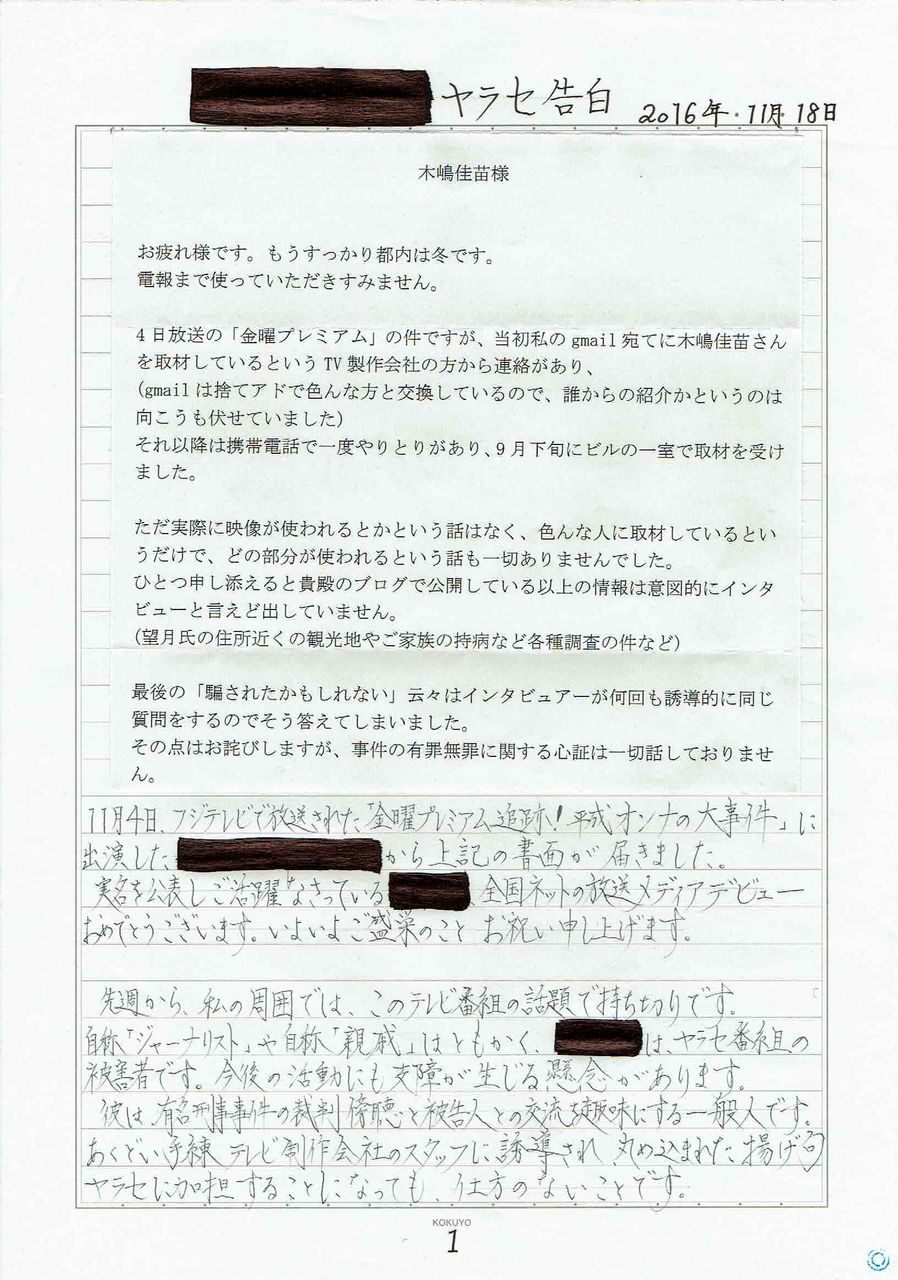 ヤラセ告白 2016年・11月18日
木嶋佳苗様
お疲れ様です。もうすっかり都内は冬です。
電報まで使っていただきすみません。
4日放送の「金曜プレミアム」の件ですが、当初私のgmail宛てに木嶋佳苗さん
を取材しているというTV製作会社の方から連絡があり、
(gmailは捨てアドで色んな方と交換しているので、誰からの紹介かというのは
向こうも伏せていました)
それ以降は携帯電話で一度やりとりがあり、9月下旬にビルの一室で取材を受け
ました。
ただ実際に映像が使われるとかという話はなく、色んな人に取材しているとい
うだけで、どの部分が使われるという話も一切ありませんでした。
ひとつ申し添えると貴殿のブログで公開している以上の情報は意図的にインタ
ビューと言えど出していません。
(望月氏の住所近くの観光地やご家族の持病など各種調査の件など)
最後の「騙されたかもしれない」云々はインタビュアーが何回も誘導的に同じ
質問をするのでそう答えてしまいました。
その点はお詫びしますが、事件の有罪無罪に関する心証は一切話しておりませ
ん。
11月4日、フジテレビで放送された「金曜プレミアム追跡!平成オンナの大事件」に
出演した から上記の書面が届きました。
実名を公表しご活躍なさっている 、全国ネットの放送メディアデビュー
おめでとうございます。いよいよご盛栄のこと お祝い申し上げます。
先週から、私の周囲では、このテレビ番組の話題で持ち切りです。
自称「ジャーナリスト」や自称「親戚」はともかく、 は、ヤラセ番組の
被害者です。今後の活動にも支障が生じる懸念があります。
彼は、有名刑事事件の裁判傍聴と被告人との交流を趣味にする一般人です。
あくどい手練 テレビ制作会社のスタッフに誘導され、丸め込まれた揚げ句
ヤラセに加担することになっても、仕方のないことです。
KOKUYO
1